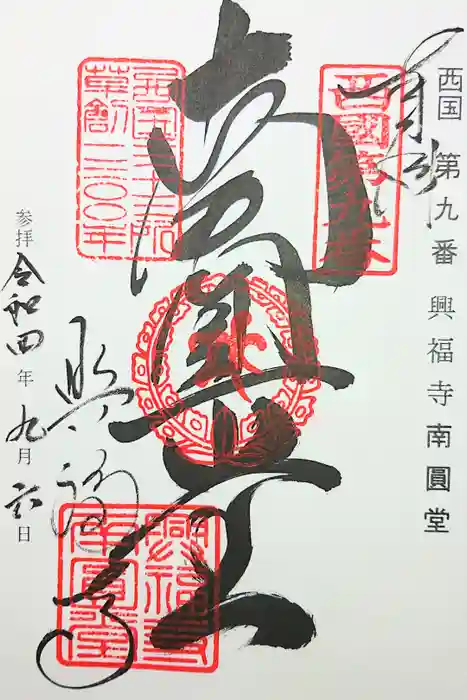 西国 第九番 興福寺南圓堂
奉拝
西國第九番
南圓堂
西国三十三所
草創一三〇〇年
興福寺
興福寺
南圓堂
参拝 令和四年九月六日